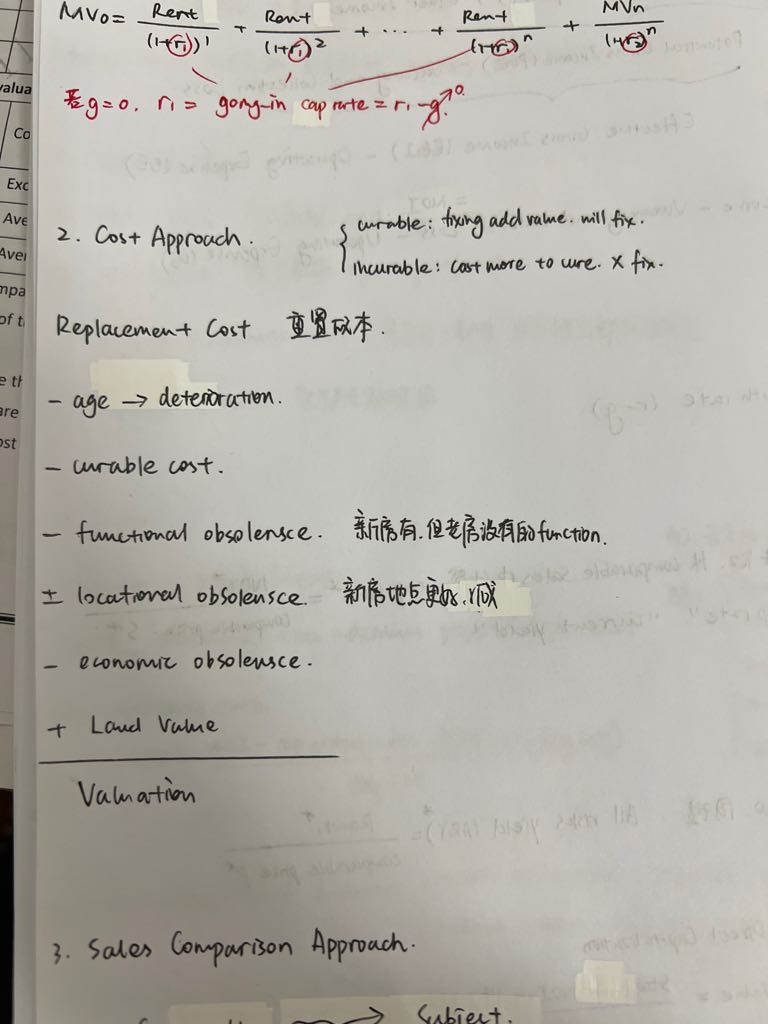 MV₀ = Rent/(1+r₁)¹ + Rent/(1+r₁)² + ... + Rent/(1+r₁)ⁿ + MVn/(1+r₂)ⁿ
若g=0. r₁ = going-in cap rate = r₁-g↗0
valua
Co
Exc
Ave
Aver
mpa
of t
e th
are
ost
2. Cost Approach.
curable: fixing add value. will fix.
incurable: cost more to cure. × fix.
Replacement Cost 重置成本.
- age → deterioration.
- curable cost.
- functional obsolensce. 新房有.但老房没有的function.
± locational obsolensce. 新房地点更好.则减
- economic obsolensce.
+ Land Value
Valuation
3. Sales Comparison Approach.
Subject.